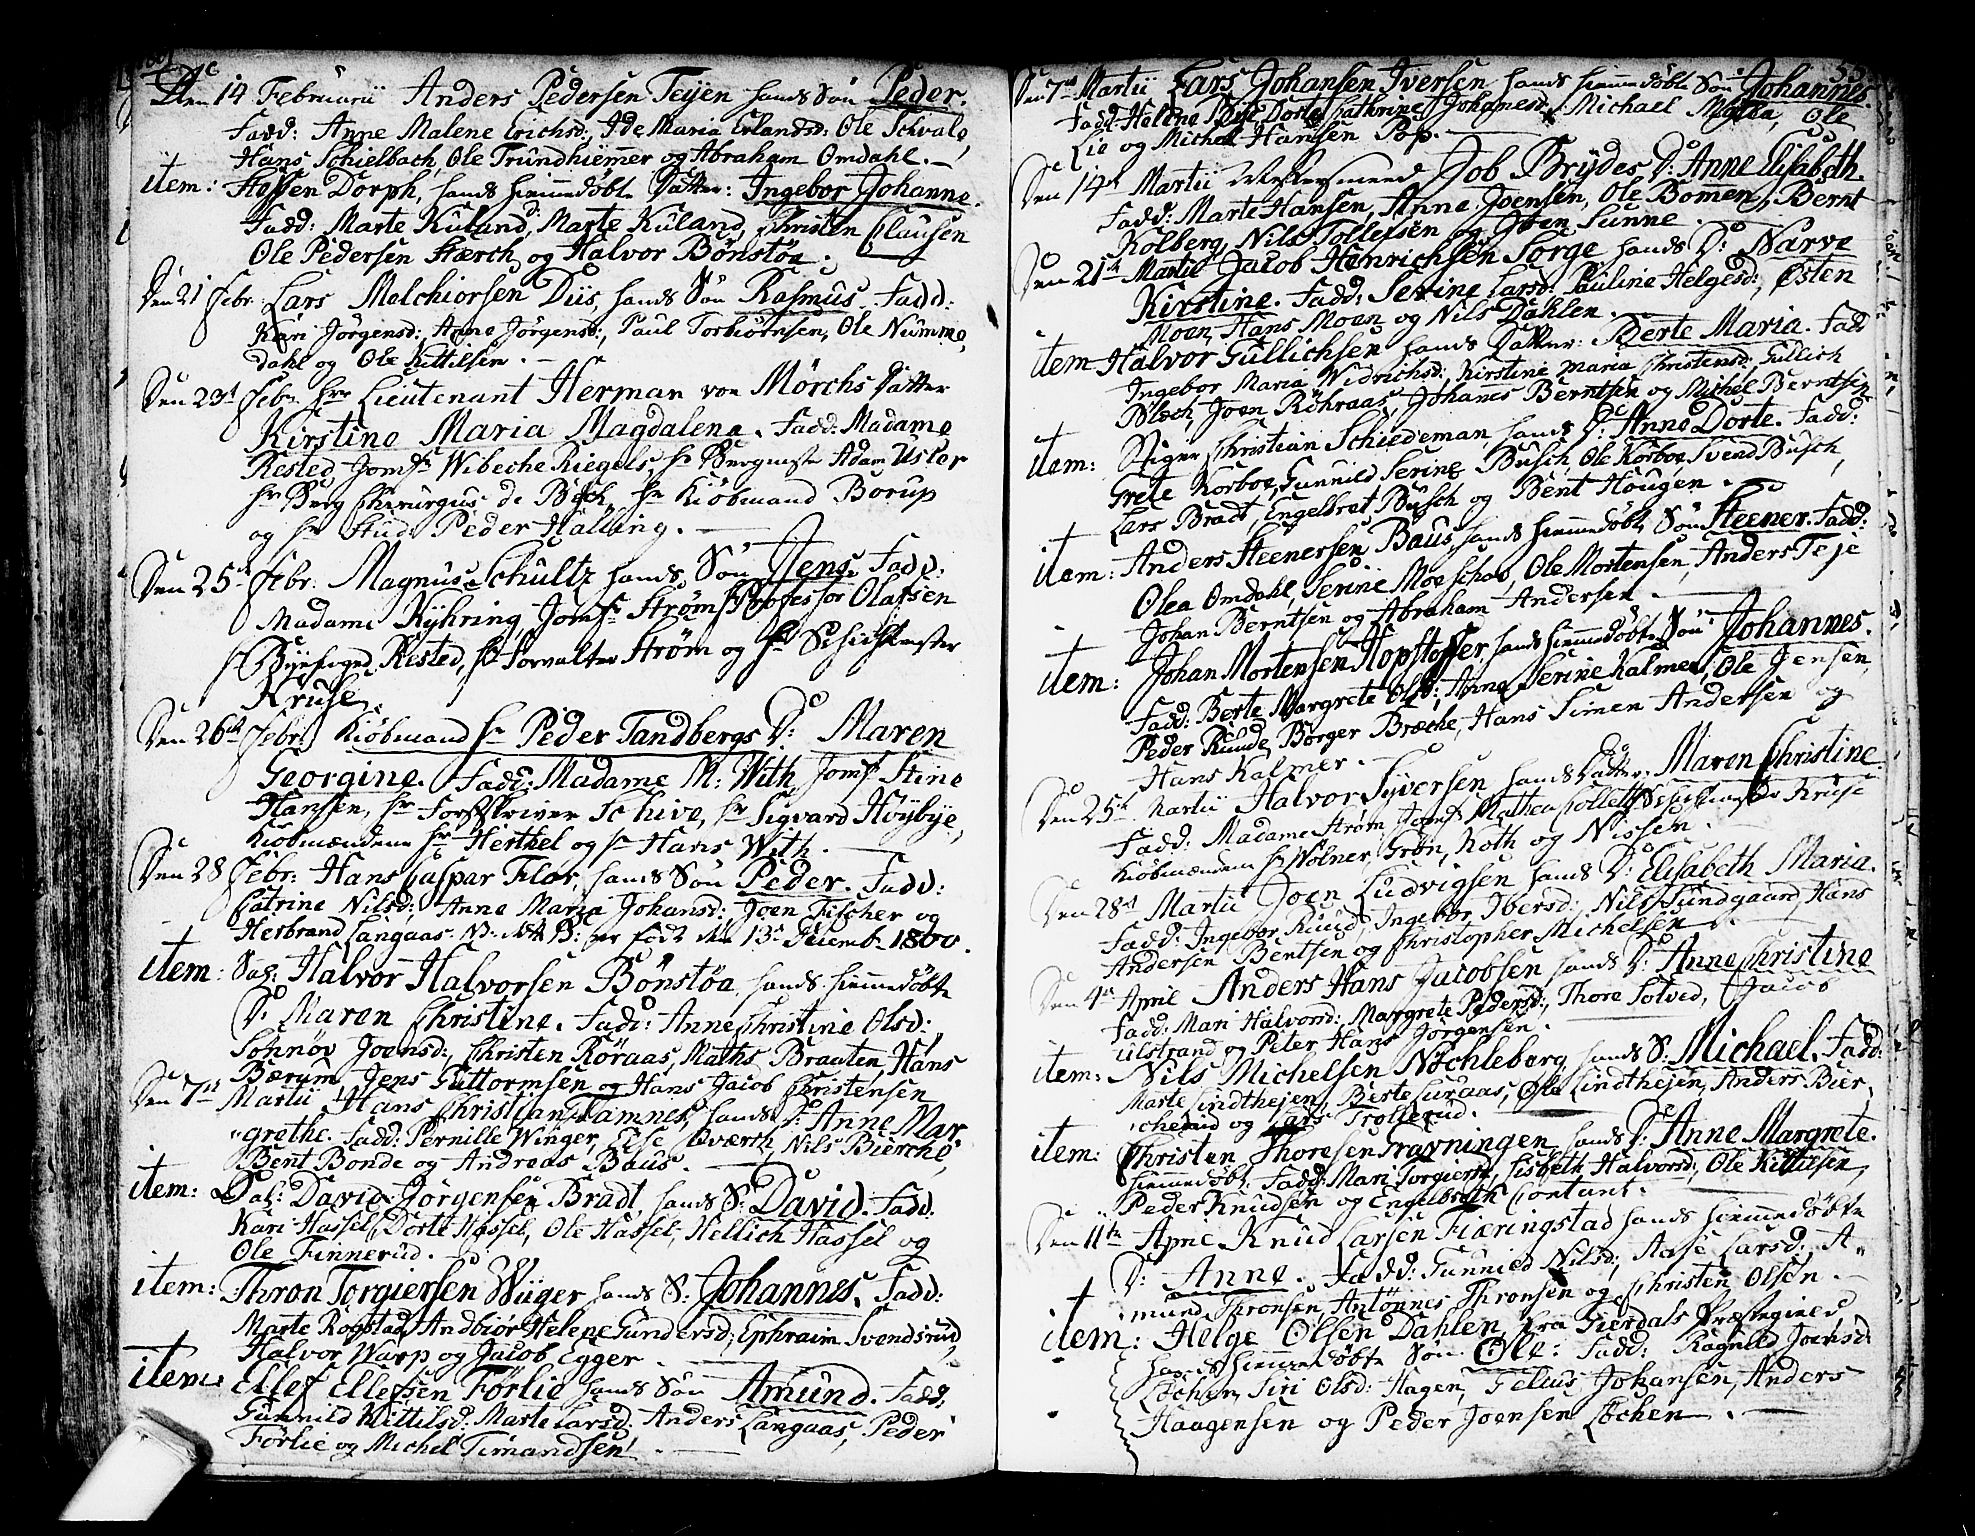 Den 14 Februarii Anders Pedersen Teijen hands Sön Peder.
Fadd: Anne Malene Erichsd:, Ide Maria Erlandsd: Ole Schvale,
Hans Schielbach, Ole Trundhiemmer og Abraham Omdahl. —
item: Steffen Dorph, hands hiemmedøbte Datter: Ingebor Johanne.
Fadd: Marte Kuland, Marte Kuland, Christen Clausen
Ole Pedersen Stærch og Halvor Bønstøa.
Den 21 Febr: Lars Melchiorsen Diis, hands Sön Rasmus. Fadd:
Kari Jörgensd:, Anne Jörgensd:, Paul Torbiørnsen, Ole Numme-
dahl og Ole Kittilsen. —
Den 23d Febr: Hr Lieutenant Herman von Mörchs Datter
Kirstine Maria Magdalena. Fadd: Madame
Rested, Jomfr Wibeche Riegels, Hr Bergmester Adam Usler
Hr Berg Chirurgus de Besch, Hr Kiöbmand Borup
og Hr Stud: Peder Halling. —
Den 25d Febr: Magnus Schultz hands Sön Jens. Fadd:
Madame Nyhring, Jomfr Strøm, Professor Olafsen
Hr Byefoged Rested, Hr Forvalter Strøm og Hr Schichtmester
Kruse.
Den 26de Febr: Kiöbmand Hr Peder Tandbergs D: Maren
Georgine. Fadd: Madame M: With, Jomfr Stine
Hansen, Hr Forstskriver Schive, Hr Sigvard Höybye,
Kiöbmændene Hr Herthel og Hr Hans With. —
Den 28 Febr: Hans Caspar Flor, hands Sön Peder. Fadd:
Catrine Nilsd:, Anne Maria Johansd:, Joen Fischer og
Herbrand Langaas. NB: dette B: er født den 13de Decemb: 1800.
item: Sag: Halvor Halvorsen Bönstöa, hands hiemmedøbte
D: Maren Christine. Fadd: Anne Christine Olsd:,
Sønnøv Joensd:, Christen Röraas, Maths Braaten, Hans
Bærum, Jens Guttormsen og Hans Jacob Christensen
Den 7de Martii Hans Christian Damnes, hands D: Anne Mar-
grethe. Fadd: Pernille Winger, Else Qværch, Nils Bierche,
Bent Bonde og Andreas Baus. —
item: Sal: David Jörgensen Bradt, hands S: David. Fadd:
Kari Hassel, Dorte Hassel, Ole Hassel, Hellich Hassel og
Ole Finnerud. —
item: Thron Torgiersen Wüger hands S: Johannes. Fadd:
Marte Rogstad, Andbiør Helene Gundersd:, Ephraim Svendsrud,
Halvor Warp og Jacob Egger. —
item: Ellef Ellefsen Førlie hands Sön Amund. Fadd:
Gunnild Kittilsd. Marte Larsd: Anders Langaas, Peder
Førlie og Michel Timandsen. —
Den 7de Martii Lars Johansen Iversen hands hiemmedøbte Sön Johannes.
Fadd: Helene Dyt, Dorte Cathrine Johanesd: Michael, Ole
Lie og Michel Hansen Pop. —
Den 14de Martii Job Brydes D: Anne Elisabeth.
Fadd: Marte Hansen, Anne Joensen, Ole Bomen, Bernt
Kolberg, Nils Tollefsen og Joen Sunne.
Den 21de Martii Jacob Henrichsen Sorge hands D: Narve
Kirstine. Fadd: Serine Larsd: Pauline Helgesd:, Østen
Moen, Hans Moen og Nils Dahlen. —
item Halvor Gullichsen hands Datter: Berte Maria. Fadd
Ingebor Maria Widrichsd:, Kirstine Maria Christensd:, Gullich
Blech, Joen Röhraas, Johanes Berntsen og Michel Berntsen
item: Stiger Christian Schiedeman, hands D: Anne Dorte. Fadd:
Grete Korboe, Gunnild Serine Busch, Ole Korboe, Svend Busch,
Lars Bradt, Engelbret Busch og Bent Hougen.
item: Anders Steenersen Baus, hands hiemmedøbte Sön Steener. Fadd:
Olea Omdahl, Serine Moeschov, Ole Mortensen, Anders Teje
Johan Berntsen og Abraham Andersen. —
item: Johan Mortensen Hopstosser, hands hiemmedøbte Sön Johannes.
Fadd: Berte Margrete Olsd:, Anne Serine Kalmer, Ole Jensen,
Peder Runde, Börger Bræche, Hans Simen Andersen og
Hans Kalmer. —
Den 25de Martii Halvor Syversen hands Datter: Maren Christine.
Fadd: Madame Strøm, Jomfr Mathea Collett, Schichtmester Kruse
Kiöbmændene Hr Wölner, Grøn, Koth og Nissen.
Den 28de Martii Joen Ludvigsen hands D: Elisabeth Maria.
Fadd: Ingebor Ruud, Ingebor Ibersd:, Nils Sundgaard, Hans
Andersen Bentsen og Christopher Michelsen.
Den 4de April Anders Hans Jacobsen hands D: Anne Christine
Fadd: Mari Halvorsd: Margrete Pedersd:, Thore Solved, Jacob
Ulstrand og Peter Hans Jörgensen.
item: Nils Michelsen Nöchleberg hands S: Michael. Fadd:
Marte Lindthejen, Berte Luraas, Ole Lindthejen, Anders Bier-
cherud og Lars Trollerud.
item: Christen Thoresen Gravningen hands D: Anne Margrete.
hiemmedøbt. Fadd: Mari Torgiersd:, Lisbeth Halvorsd:, Ole Kittilsen,
Peder Knudsen og Engelbreth Contant.
Den 11te April Knud Larsen Fiæringstad hands hiemmedøbte
D: Anne. Fadd: Gunnild Nilsd:, Aase Larsd: A-
mund Thronsen, Antönnes Thronsen og Christen Olsen. —
item: Helge Olsen Dahlen, fra Gierdals Præstegield
hands hiemmedøbte Sön Ole. Fadd: Ragnild Joensd:
Løchen, Siri Olsd: Hagen, Felius Johansen, Anders
Haagensen og Peder Joensen Løchen. —